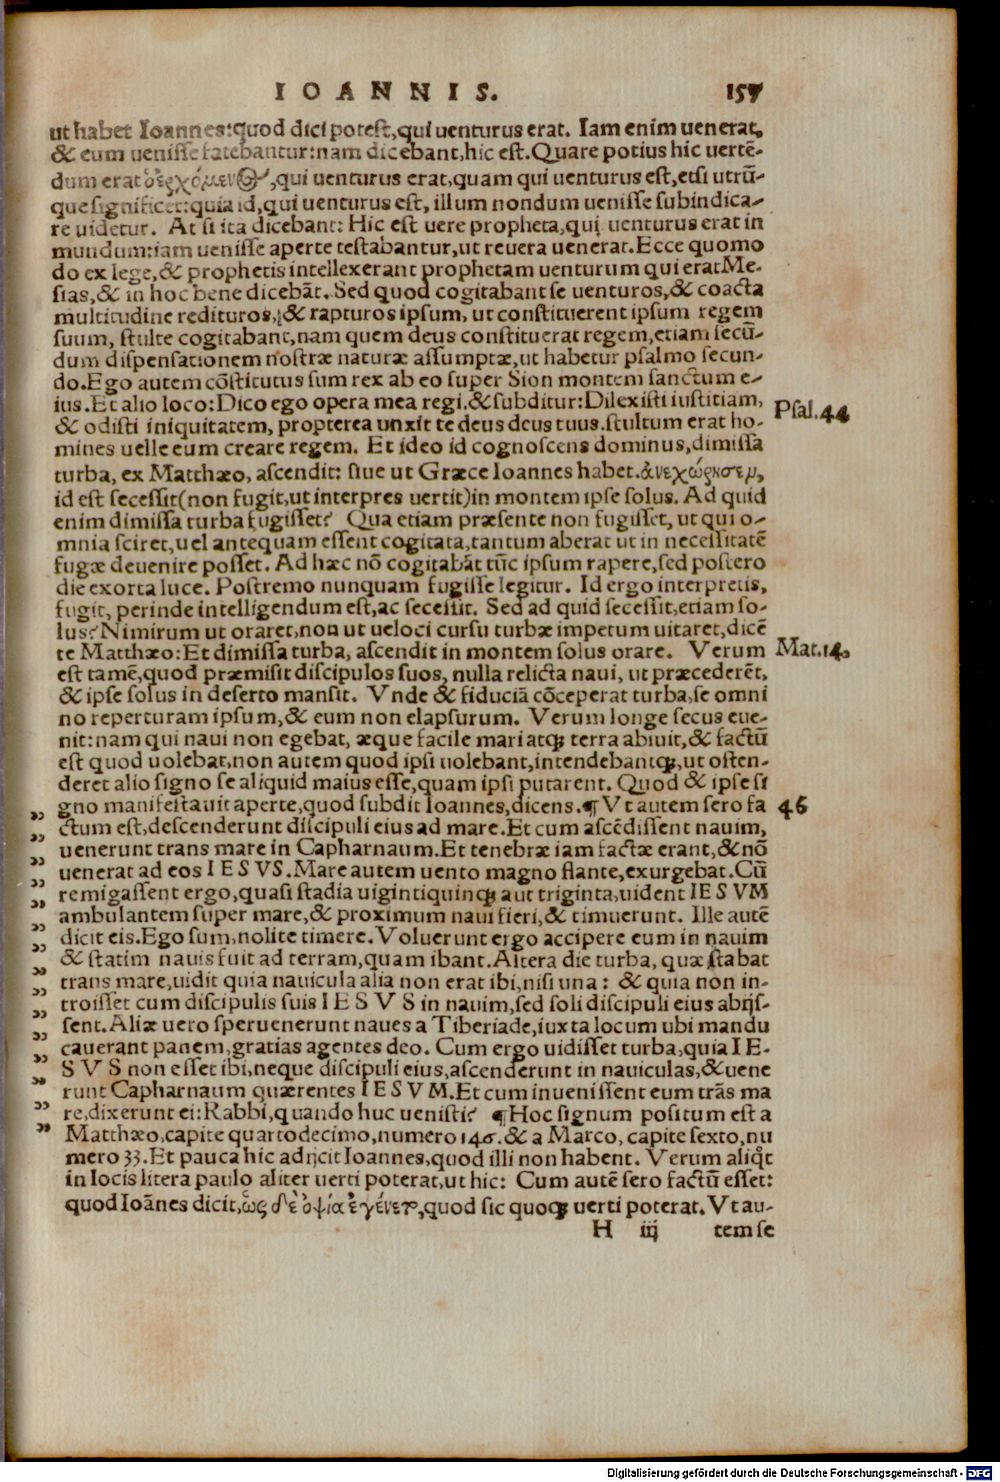 IOANNIS. 157
ut habet Ioannes:quod dici potest,qui uenturus erat. Iam enim uenerat,
& eum uenisse fatebantur:nam dicebant,hic est.Quare potius hic uertē-
dum erat ὁ ἐρχόμενος,qui uenturus erat,quam qui uenturus est,etsi utrū-
que significet:quia id,qui uenturus est, illum nondum uenisse subindica-
re uidetur. At si ita dicebant: Hic est uere propheta,qui uenturus erat in
mundum:iam uenisse aperte testabantur,ut reuera uenerat.Ecce quomo
do ex lege,& prophetis intellexerant prophetam uenturum qui erat Me-
sias,& in hoc bene dicebāt. Sed quod cogitabant se uenturos,& coacta
multitudine redituros,& rapturos ipsum, ut constituerent ipsum regem
suum, stulte cogitabant,nam quem deus constituerat regem,etiam secū-
dum dispensationem nostræ naturæ assumptæ,ut habetur psalmo secun-
do.Ego autem cōstitutus sum rex ab eo super Sion montem sanctum e-
ius.Et alio loco:Dico ego opera mea regi.& subditur:Dilexisti iustitiam, Psal.44
& odisti iniquitatem, propterea unxit te deus deus tuus.stultum erat ho-
mines uelle eum creare regem. Et ideo id cognoscens dominus,dimissa
turba, ex Matthæo, ascendit: siue ut Græce Ioannes habet.ἀνεχώρησεμ,
id est secessit(non fugit,ut interpres uertit)in montem ipse solus. Ad quid
enim dimissa turba fugisset? Qua etiam præsente non fugisset, ut qui o-
mnia sciret,uel antequam essent cogitata,tantum aberat ut in necessitatē
fugæ deuenire posset. Ad hæc nō cogitabāt tūc ipsum rapere,sed postero
die exorta luce. Postremo nunquam fugisse legitur. Id ergo interpretis,
fugit, perinde intelligendum est,ac secessit. Sed ad quid secessit,etiam so-
lus? Nimirum ut oraret,non ut ueloci cursu turbæ impetum uitaret,dicē
te Matthæo:Et dimissa turba, ascendit in montem solus orare. Verum Mat.14.
est tamē,quod præmisit discipulos suos, nulla relicta naui, ut præcederēt,
& ipse solus in deserto mansit. Vnde & fiduciā cōceperat turba,se omni
no reperturam ipsum,& eum non elapsurum. Verum longe secus eue-
nit:nam qui naui non egebat, æque facile mari atqꝫ terra abiuit,& factū
est quod uolebat,non autem quod ipsi uolebant,intendebantqꝫ,ut osten-
deret alio signo se aliquid maius esse,quam ipsi putarent. Quod & ipse si
gno manifestauit aperte,quod subdit Ioannes,dicens.¶ Vt autem sero fa 46
„ ctum est,descenderunt discipuli eius ad mare.Et cum ascēdissent nauim,
„ uenerunt trans mare in Capharnaum.Et tenebræ iam factæ erant,& nō
„ uenerat ad eos IESVS.Mare autem uento magno flante,exurgebat.Cū
„ remigassent ergo,quasi stadia uigintiquinqꝫ aut triginta,uident IESVM
„ ambulantem super mare,& proximum naui fieri,& timuerunt. Ille autē
„ dicit eis.Ego sum,nolite timere.Voluerunt ergo accipere eum in nauim
„ & statim nauis fuit ad terram,quam ibant.Altera die turba, quæ stabat
„ trans mare,uidit quia nauicula alia non erat ibi,nisi una: & quia non in-
„ troisset cum discipulis suis IESVS in nauim,sed soli discipuli eius abijs-
„ sent.Aliæ uero superuenerunt naues a Tiberiade,iuxta locum ubi mandu
„ cauerant panem,gratias agentes deo. Cum ergo uidisset turba,quia IE-
„ SVS non esset ibi,neque discipuli eius,ascenderunt in nauiculas,& uene
„ runt Capharnaum quærentes IESVM.Et cum inuenissent eum trās ma
„ re,dixerunt ei:Rabbi,quando huc uenisti? ¶Hoc signum positum est a
Matthæo,capite quartodecimo,numero 146.& a Marco, capite sexto,nu
mero 33.Et pauca hic adijcit Ioannes,quod illi non habent. Verum aliqt
in locis litera paulo aliter uerti poterat,ut hic: Cum autē sero factū esset:
quod Ioānes dicit,ὡς δὲ ὀψία ἐγένετο,quod sic quoqꝫ uerti poterat.Vt au-
H iij temse
Digitalisierung gefördert durch die Deutsche Forschungsgemeinschaft - DFG